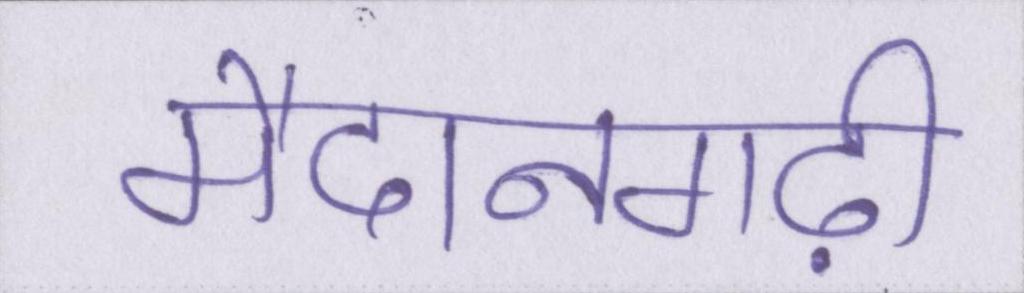 मैदानगढ़ी